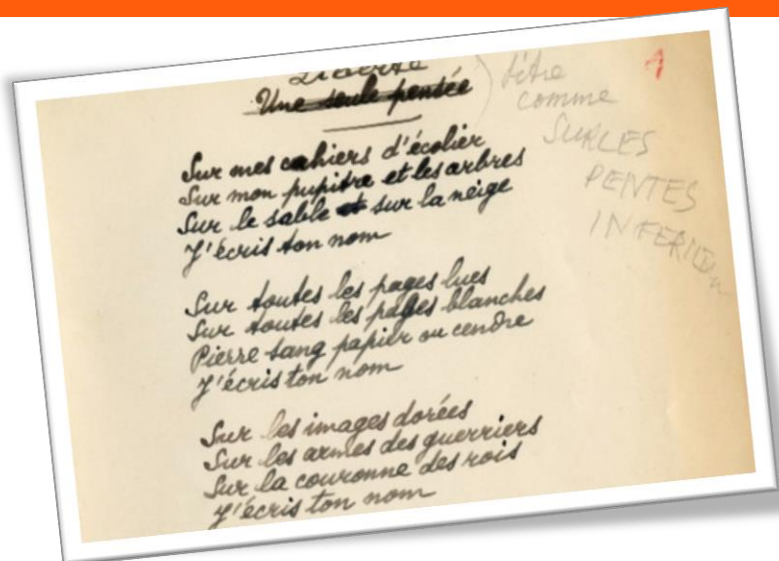 Liberté
Une seule pensée
Sur mes cahiers d'écolier
Sur mon pupitre et les arbres
Sur le sable et sur la neige
J'écris ton nom
Sur toutes les pages lues
Sur toutes les pages blanches
Pierre sang papier ou cendre
J'écris ton nom
Sur les images dorées
Sur les armes des guerriers
Sur la couronne des rois
J'écris ton nom
titre
comme
SUR LES
PENTES